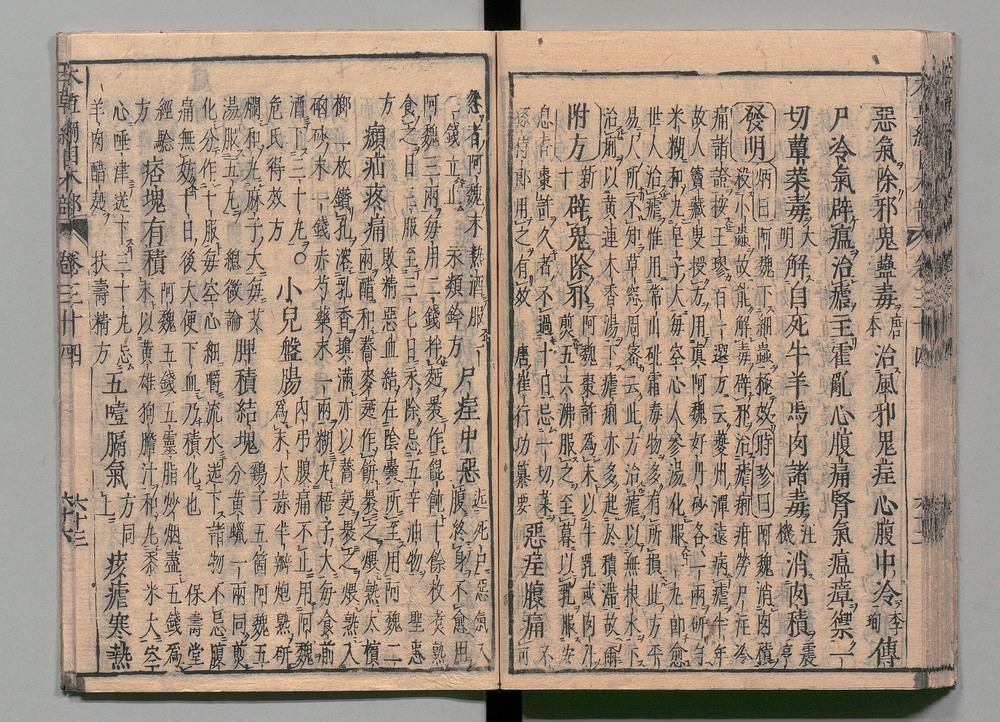 惡氣除邪鬼蠱毒唐本治風邪鬼疰心腹中冷李珣傳
尸冷氣辟瘟治瘧主霍亂心腹痛腎氣瘟瘴禦一
切蕈菜毒大明解自死牛羊馬肉諸毒汪機消肉積震亨
發明炳曰阿魏下細蟲極效時珍曰阿魏消肉積
殺小蟲故能解毒辟邪治瘧痢疳勞尸注冷
痛諸證按王璆百一選方云夔州譚遠病瘧半年
故人竇藏叟授方用真阿魏好丹砂各一兩研勻
米糊和丸皂子大每空心人參湯化服一丸即愈
世人治瘧惟用常山砒霜毒物多有所損此方平
易人所不知草窗周密云此方治瘧以無根水下
治痢以黃連木香湯下瘧痢亦多起於積滯故爾
附方新十辟鬼除邪阿魏棗許爲末以牛乳或肉汁
煎五六沸服之至暮以乳服安
息香棗許久者不過十日忌一切菜
孫侍郎用之有效唐崔行功纂要惡疰腹痛不可
忍者阿魏末熱酒服
一錢立止永類鈐方尸疰中惡近死尸惡氣入
腹終身不愈用
阿魏三兩每用二錢拌麪裹作餛飩十餘枚煮熟
食之日三服至三七日永除忌五辛油物聖惠
方㿗疝疼痛敗精惡血結在陰囊所至用阿魏二
兩醋和蕎麥麪作餠裹之煨熟大檳
榔一枚鑽孔溶乳香塡滿亦以蕎麪裹之煨熟入
硇砂末一錢赤芍藥末一兩糊丸梧子大每食前
酒下三十丸
危氏得效方小兒盤腸內弔腹痛不止用阿魏
爲末大蒜半瓣炮熟研
爛和丸麻子大每艾
湯服五丸總微論脾積結塊鷄子五箇阿魏五
分黃蠟一兩同煎
化分作十服每空心細嚼流水送下諸物不忌腹
痛無妨十日後大便下血乃積化也保壽堂
經驗
方痞塊有積阿魏五錢五靈脂炒烟盡五錢爲
末以黃雄狗膽汁和丸黍米大空
心唾津送下三十丸忌
羊肉醋麪扶壽精方五噎膈氣方同上痎瘧寒熱
本草綱目木部 卷三十四 六十三